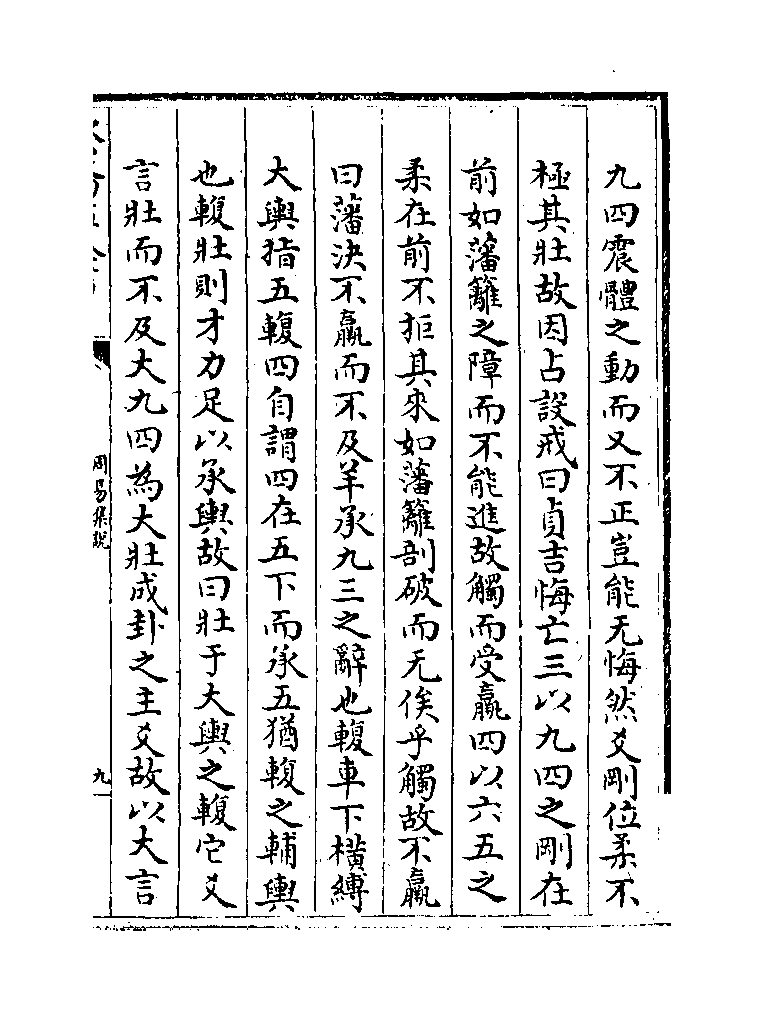 九四震體之動而又不正豈能无悔然爻剛位柔不
極其壯故因占設戒曰貞吉悔亡三以九四之剛在
前如藩籬之障而不能進故觸而受羸四以六五之
柔在前不拒其來如藩籬剖破而无俟乎觸故不羸
曰藩決不羸而不及羊承九三之辭也輹車下橫縛
大輿指五輹四自謂四在五下而承五猶輹之輔輿
也輹壯則才力足以承輿故曰壯于大輿之輹它爻
言壯而不及大九四為大壯成卦之主爻故以大言
周易集說
九